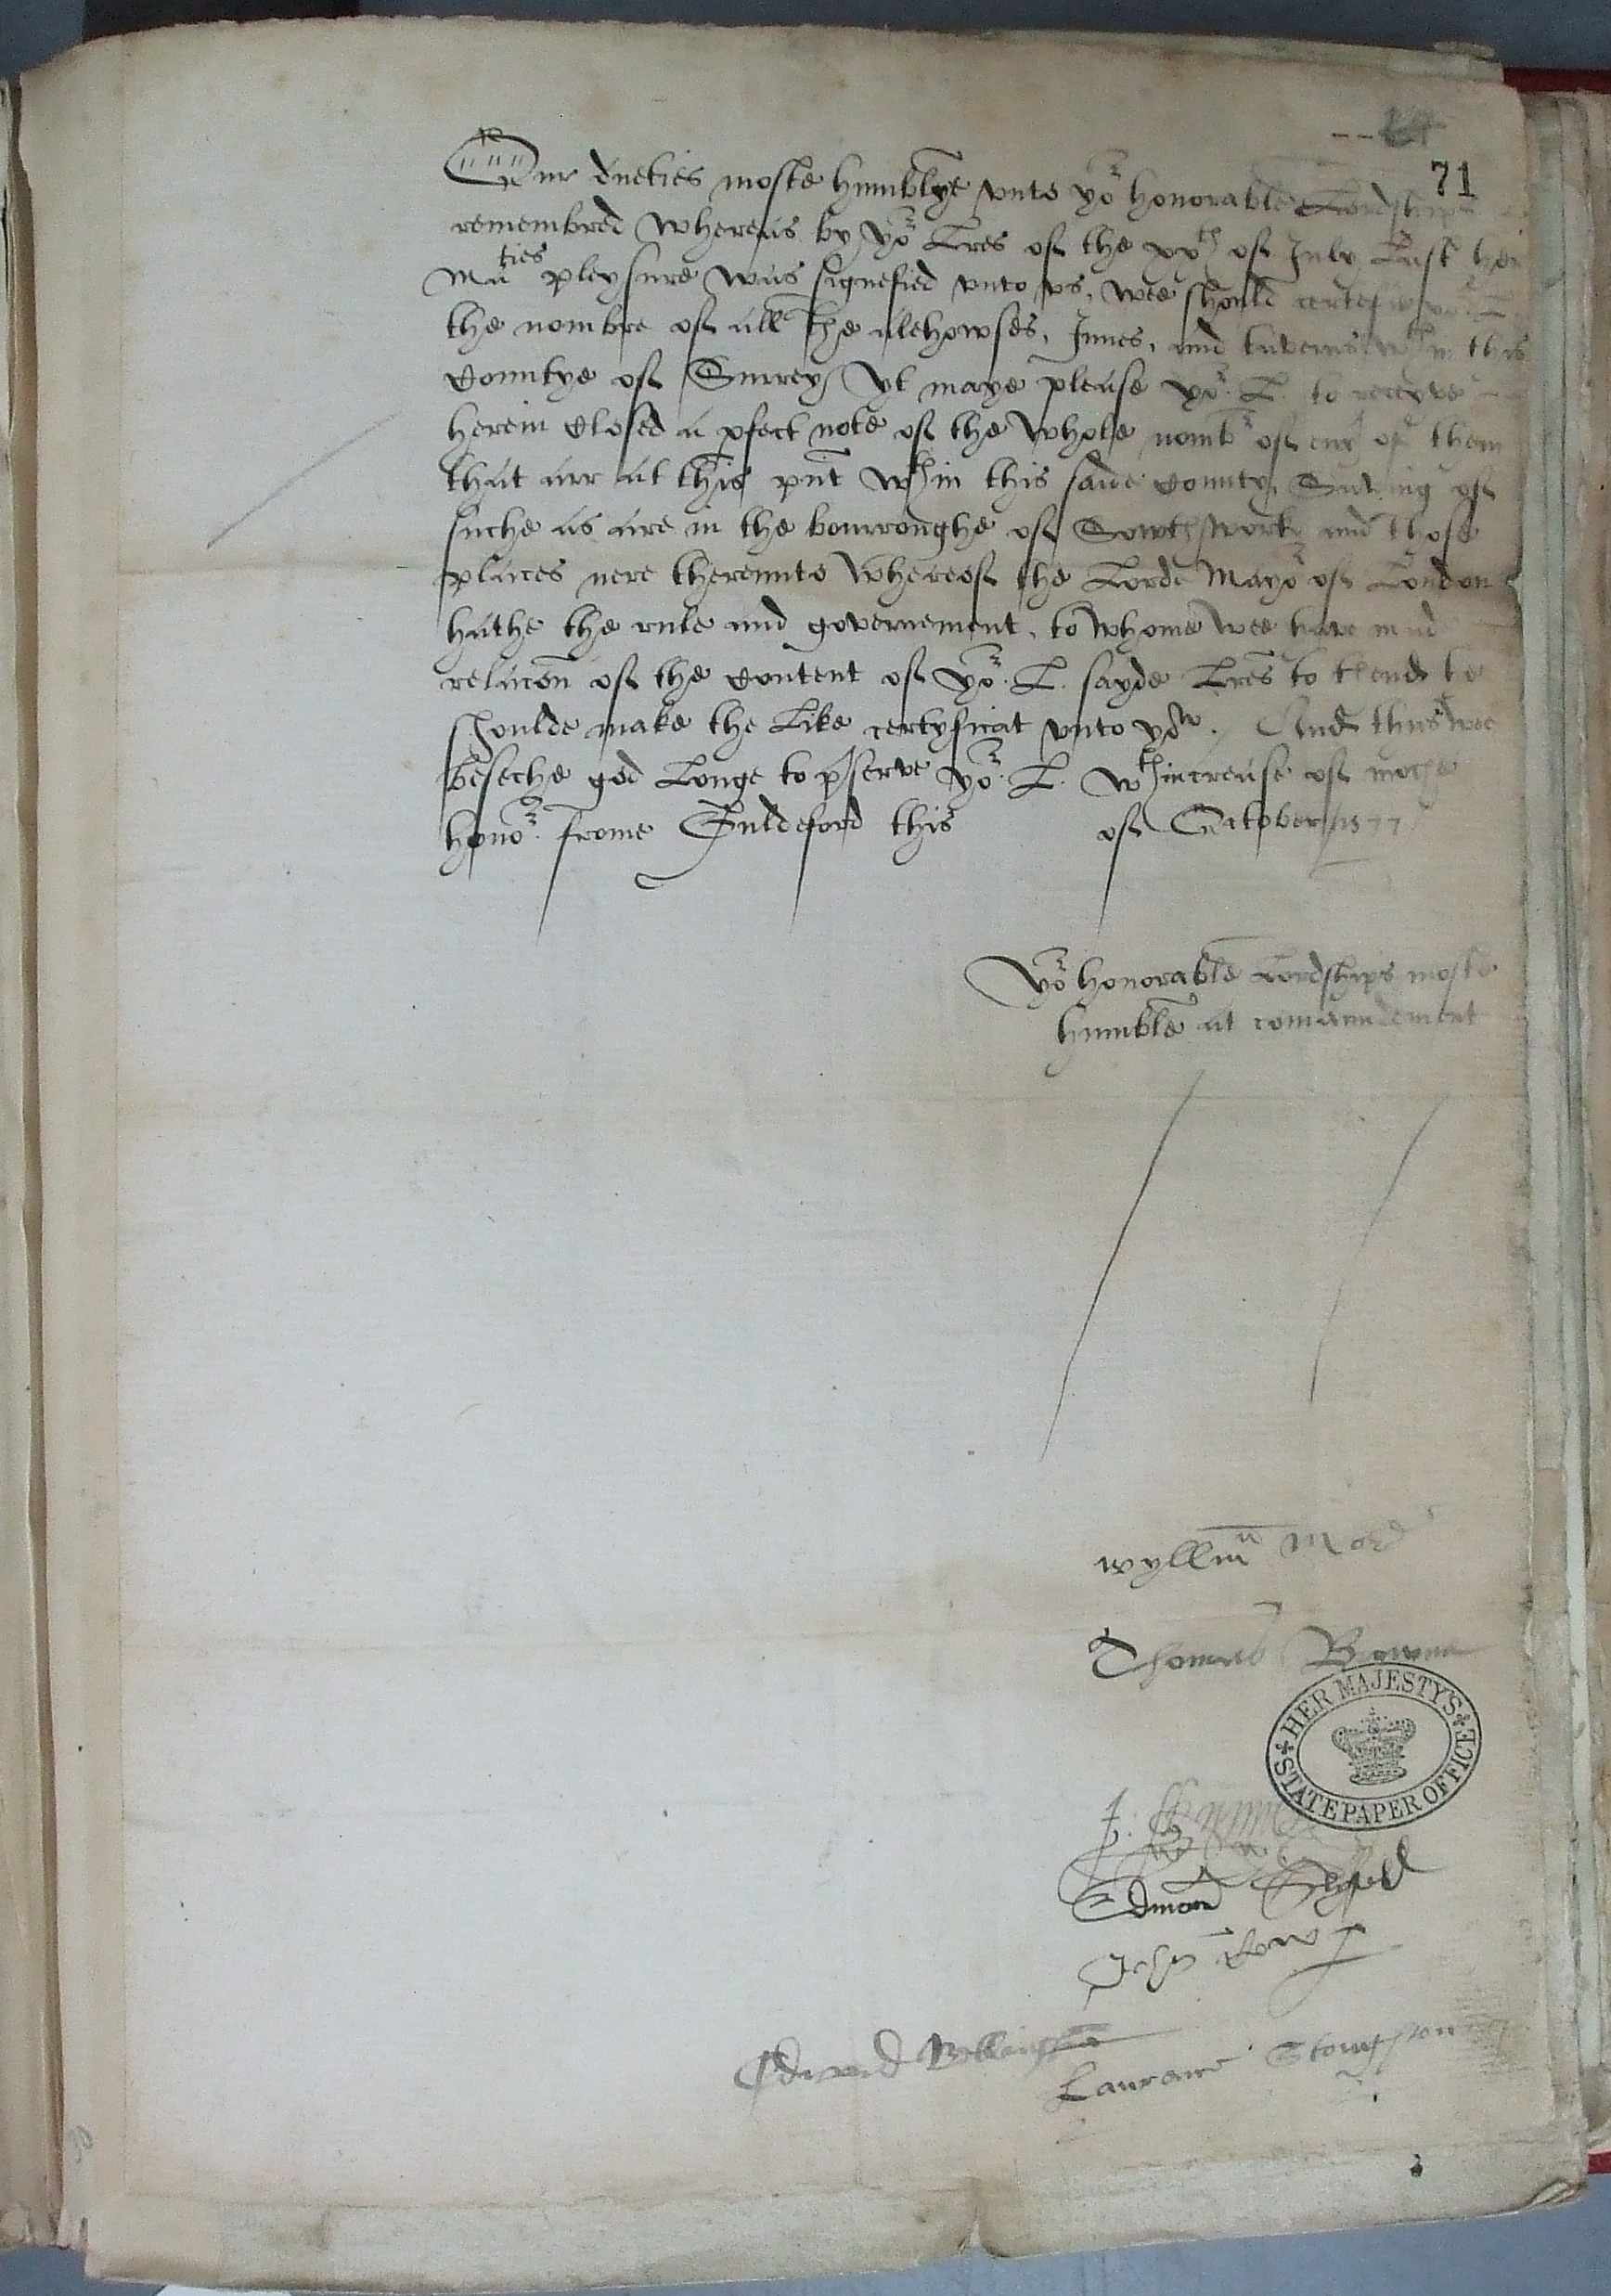 71
Our dueties moste humblye unto yor honorable Lordships
remembred whereas by yor Lres of the xxth of July Last her
Maties pleysure was signefied unto us, wee should certefie
the nombre of all the alehowses, Innes, and taverns wthin this
Countye of Surrey yt maye please yor L. to receyve
herein Closed a pfect note of the whole nombr of eny of them
that arr at this pnt wthin this saide County, Saving of
suche as are in the bourroughe of Sowthwork and those
places nere thereunto whereof the Lorde Mayor of London
hathe the rule and governement, to whome wee have mad
relacon of the Content of yor L. sayde Lres to thend he
shoulde make the Like certyficat unto yow. And thus wee
beseche god Longe to pserve yor L. wth increase of moche
honor. frome Guldeford this of October 1577
Yor honorable Lordships moste
humble at comaundement
Wyllm Mor
Thomas Browne
HER MAJESTY'S STATE PAPER OFFICE
Edmond Slyfeld
John
Edward Bellingham
Laurance Stoughton